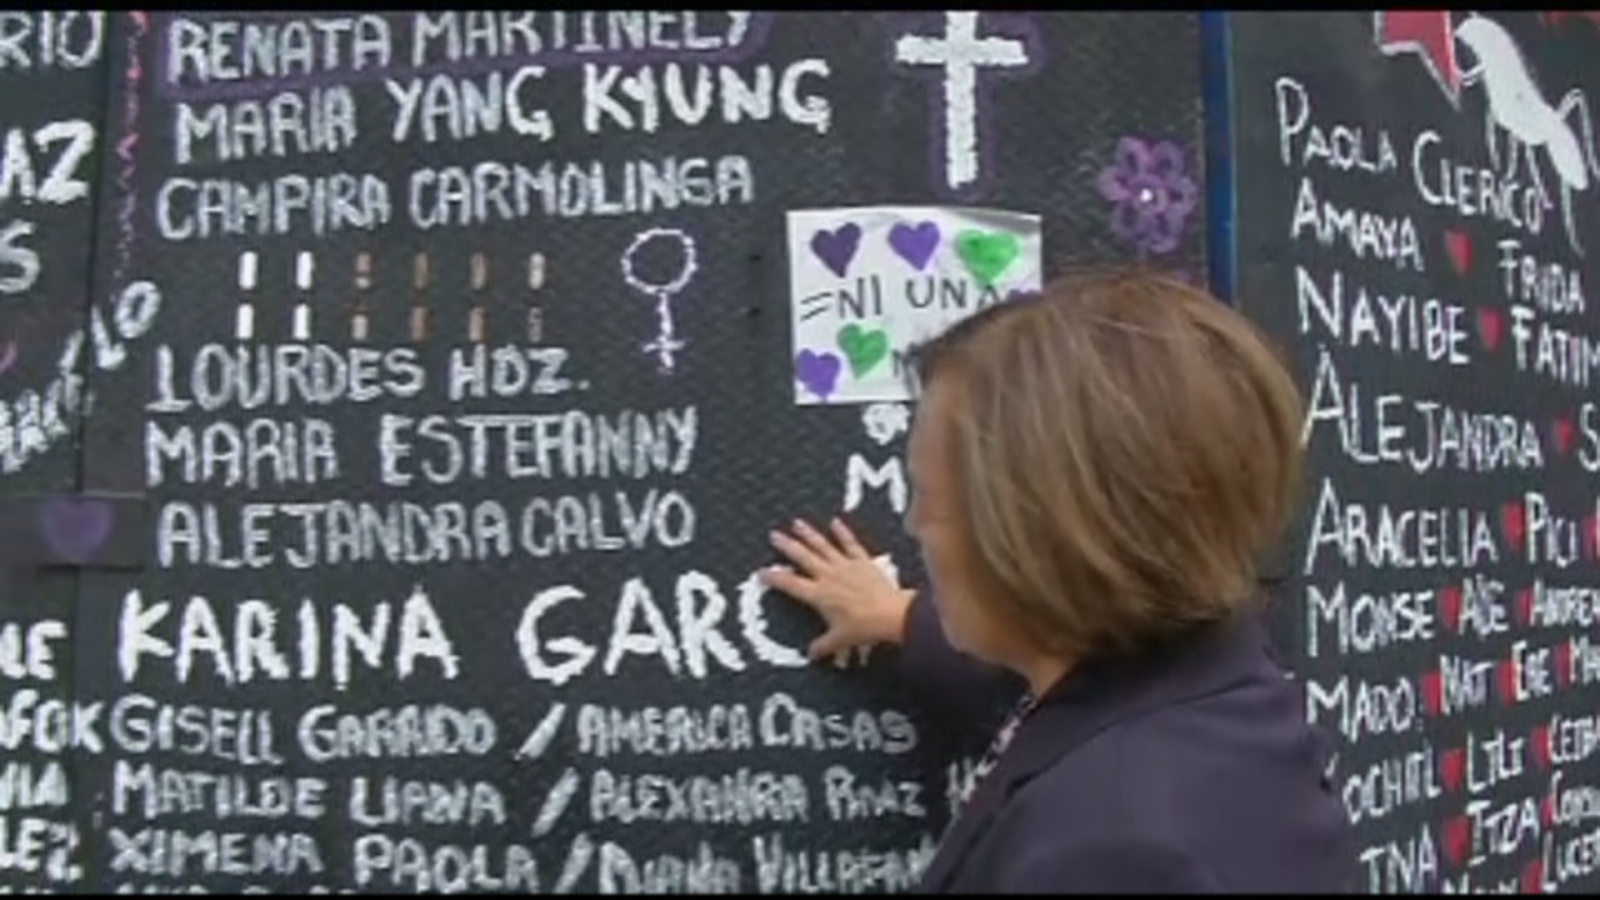 RIO
AZ
S
LO
LE
RENATA MARTINELY
MARIA YANG KYUNG
CAMPIRA CARMOLINGA
=NI UNA
LOURDES HDZ.
MARIA ESTEFANNY
M
ALEJANDRA CALVO
KARINA GARC
GISELL GARRIDO / AMERICA CASAS
MATILDE LIANA / ALEXANDRA
XIMENA PAOLA / DIANA
PAOLA CLERICO
AMAYA FRIDA
NAYIBE FATIM
ALEJANDRA S
ARACELIA PICI
MONSE ALE ANDREA
MADO. NAT ERE MA
OCHITL LILI
TNA ITZA